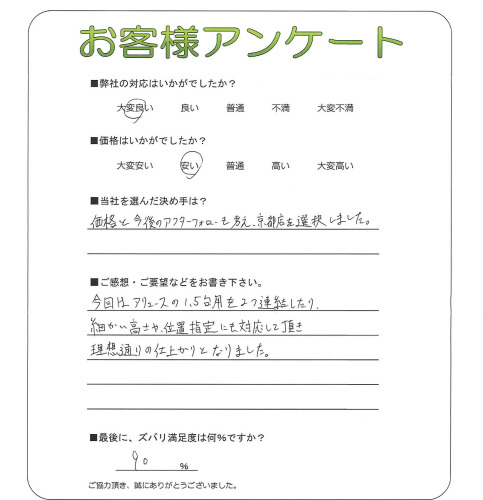 お客様アンケート
■弊社の対応はいかがでしたか？
大変良い 良い 普通 不満 大変不満
■価格はいかがでしたか？
大変安い 安い 普通 高い 大変高い
■当社を選んだ決め手は？
価格と今後のアフターフォローも考え、京都店を選択しました。
■ご感想・ご要望などをお書き下さい。
今回はアリュースの1.5台用を2つ連結したり、
細かい高さや、位置指定にも対応して頂き
理想通りの仕上がりとなりました。
■最後に、ズバリ満足度は何%ですか？
90 %
ご協力頂き、誠にありがとうございました。